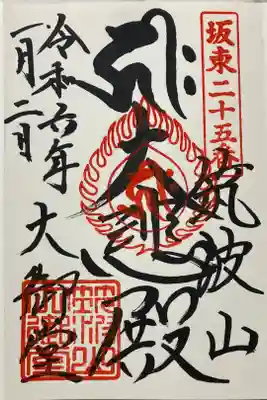 坂東二十五番
筑波山
大悲殿
令和六年
一月二日
大御堂